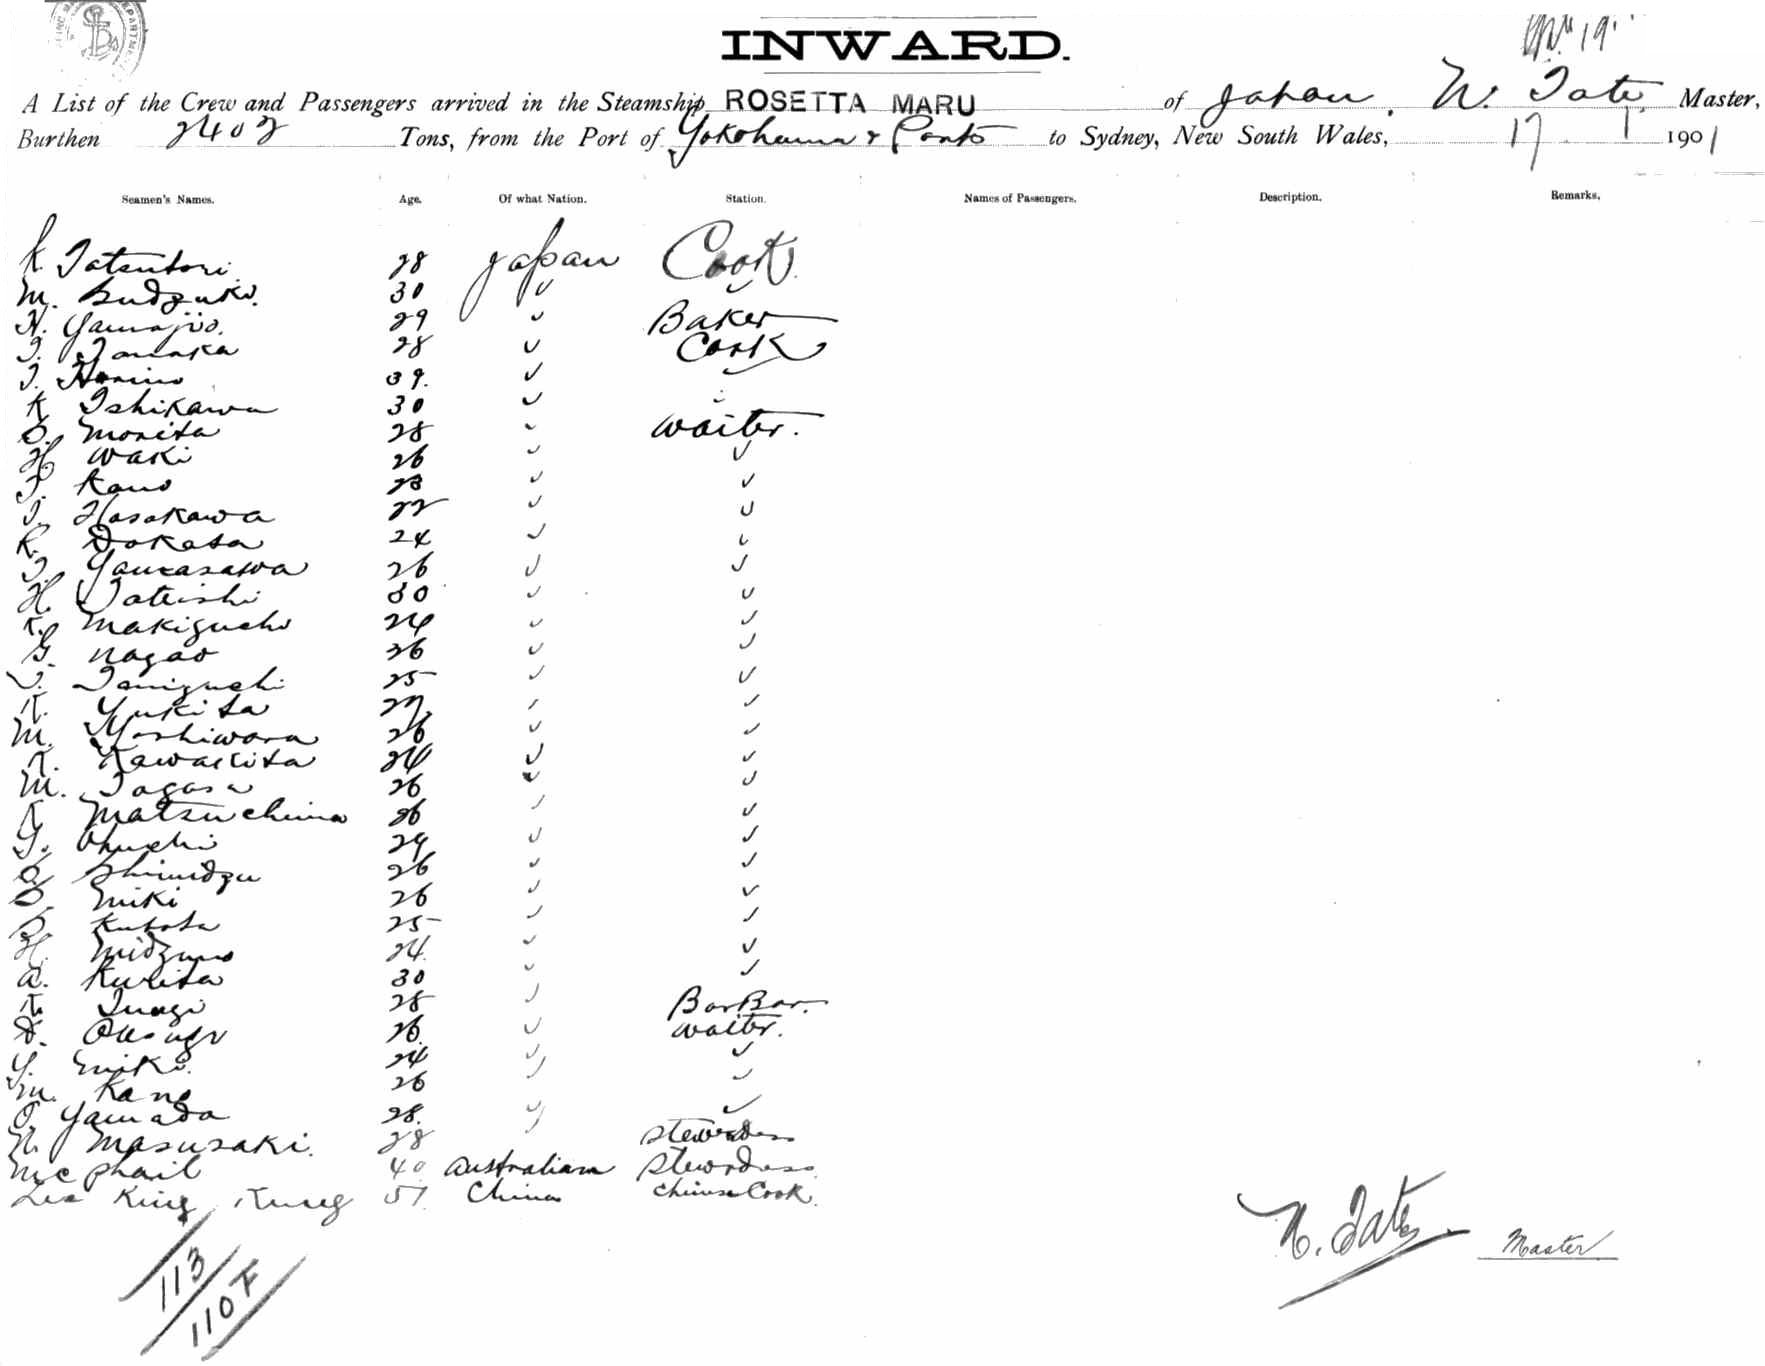 INWARD.
A List of the Crew and Passengers arrived in the Steamship ROSETTA MARU of Japan, N. Tate, Master,
Burthen 2402 Tons, from the Port of Yokohama & Ports to Sydney, New South Wales, 17 1 1901
Seamen's Names. Age. Of what Nation. Station. Names of Passengers. Description. Remarks.
K. Tatsutori 28 Japan Cook
M. Sudzuki. 30 ✓ ✓
H. Yamajio. 29 ✓ Baker
T. Tanaka 28 ✓ Cook
T. Horino 39. ✓ ✓
K Ishikawa 30 ✓
S. Morita 28 ✓ waiter.
H waki 26 ✓ ✓
T. Kano 23 ✓ ✓
T. Hasakawa 22 ✓ ✓
K. Dokata 24 ✓ ✓
T. Yamasawa 26 ✓ ✓
H. Tateishi 30 ✓ ✓
K. Makiguchi 24 ✓ ✓
G. Nagao 26 ✓ ✓
T. Taniguchi 25 ✓ ✓
K. Yukita 27. ✓ ✓
M. Yoshiwara 26 ✓ ✓
K. Kawakita 24 ✓ ✓
M. Togasa 26 ✓ ✓
K Matsuchima 26 ✓ ✓
Y. Okuchi 29 ✓ ✓
S Shimidzu 26 ✓ ✓
S. Miki 26 ✓ ✓
S. Kubota 25 ✓ ✓
H. Midzuno 24. ✓ ✓
A. Kurita 30 ✓ ✓
K. Inagi 28 ✓ BarBar.
S. Okasugi 26. ✓ waiter.
Y. Miki. 24 ✓ ✓
M. Kano 26 ✓ ✓
T Yamada 28. ✓ ✓
N. Masusaki. 28 Stewardess
McPhail 40 Australian Stewrdess
Lee King Kung 51. China Chinese Cook.
N. Tate Master
113
110 F